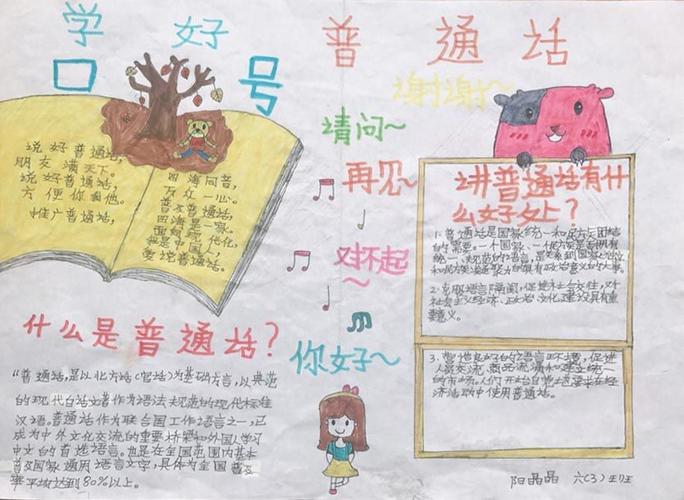 学好普通话
口号
说好普通话，
朋友满天下。
说好普通话，
方便你我他。
推广普通话，
四海同音，
万众一心。
普及普通话，
四海是一家。
面向现代化，
我是中国人，
爱说普通话。
谢谢~
请问~
再见~
对不起~
你好~
什么是普通话？
"普通话，是以北方话(官话)为基础方言，以典范
的现代白话文著作为语法规范的现代标准
汉语。普通话作为联合国工作语言之一，已
成为中外文化交流的重要桥梁和外国人学习
中文的首选语言。
普及国家通用语言文字，具体为全国普
率平均达到80%以上。
讲普通话有什
么好处上？
1.普通话是国家统一和民族团结
的需要。一个国家、一个民族是否拥有
统一、规范的语言，是关系到国家
2.克服语言隔阂，促进社会交往，对
社会主义经济、政治、文化建设具有重
要意义。
3.营造良好的语言环境，促进
人员交流，商品流通和建立统一
的市场。
济活动中使用普通话。
阳晶晶 六(3)班